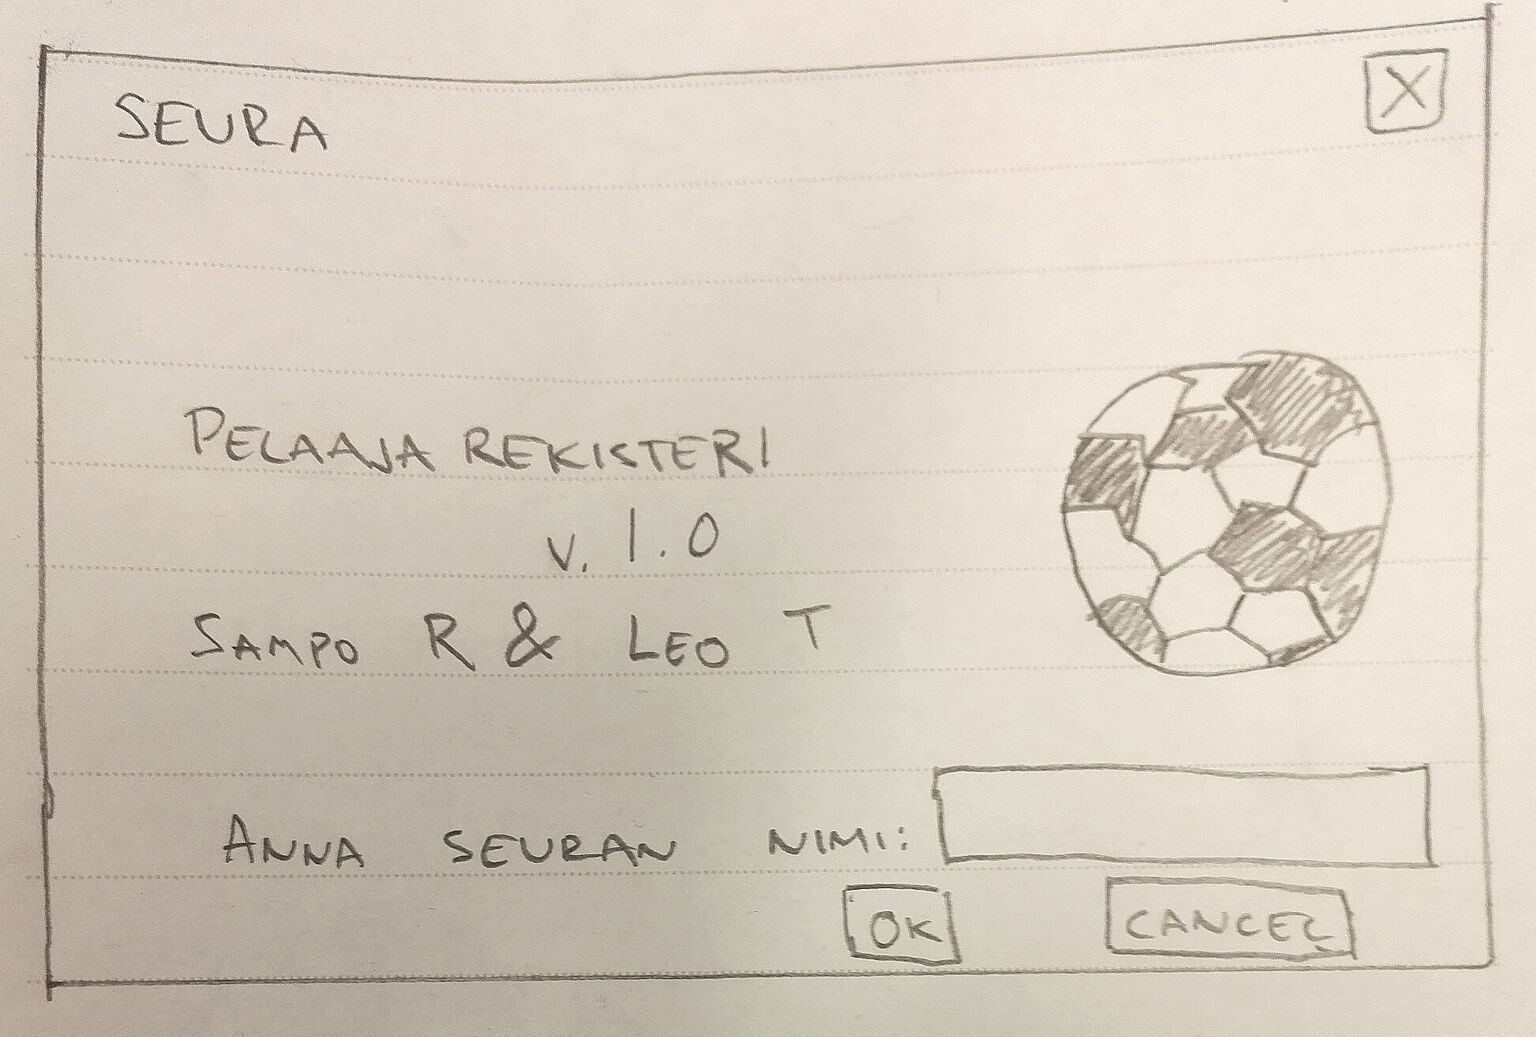 SEURA X
PELAAJA REKISTERI
v. 1.0
SAMPO R & LEO T
ANNA SEURAN NIMI:
OK CANCEL